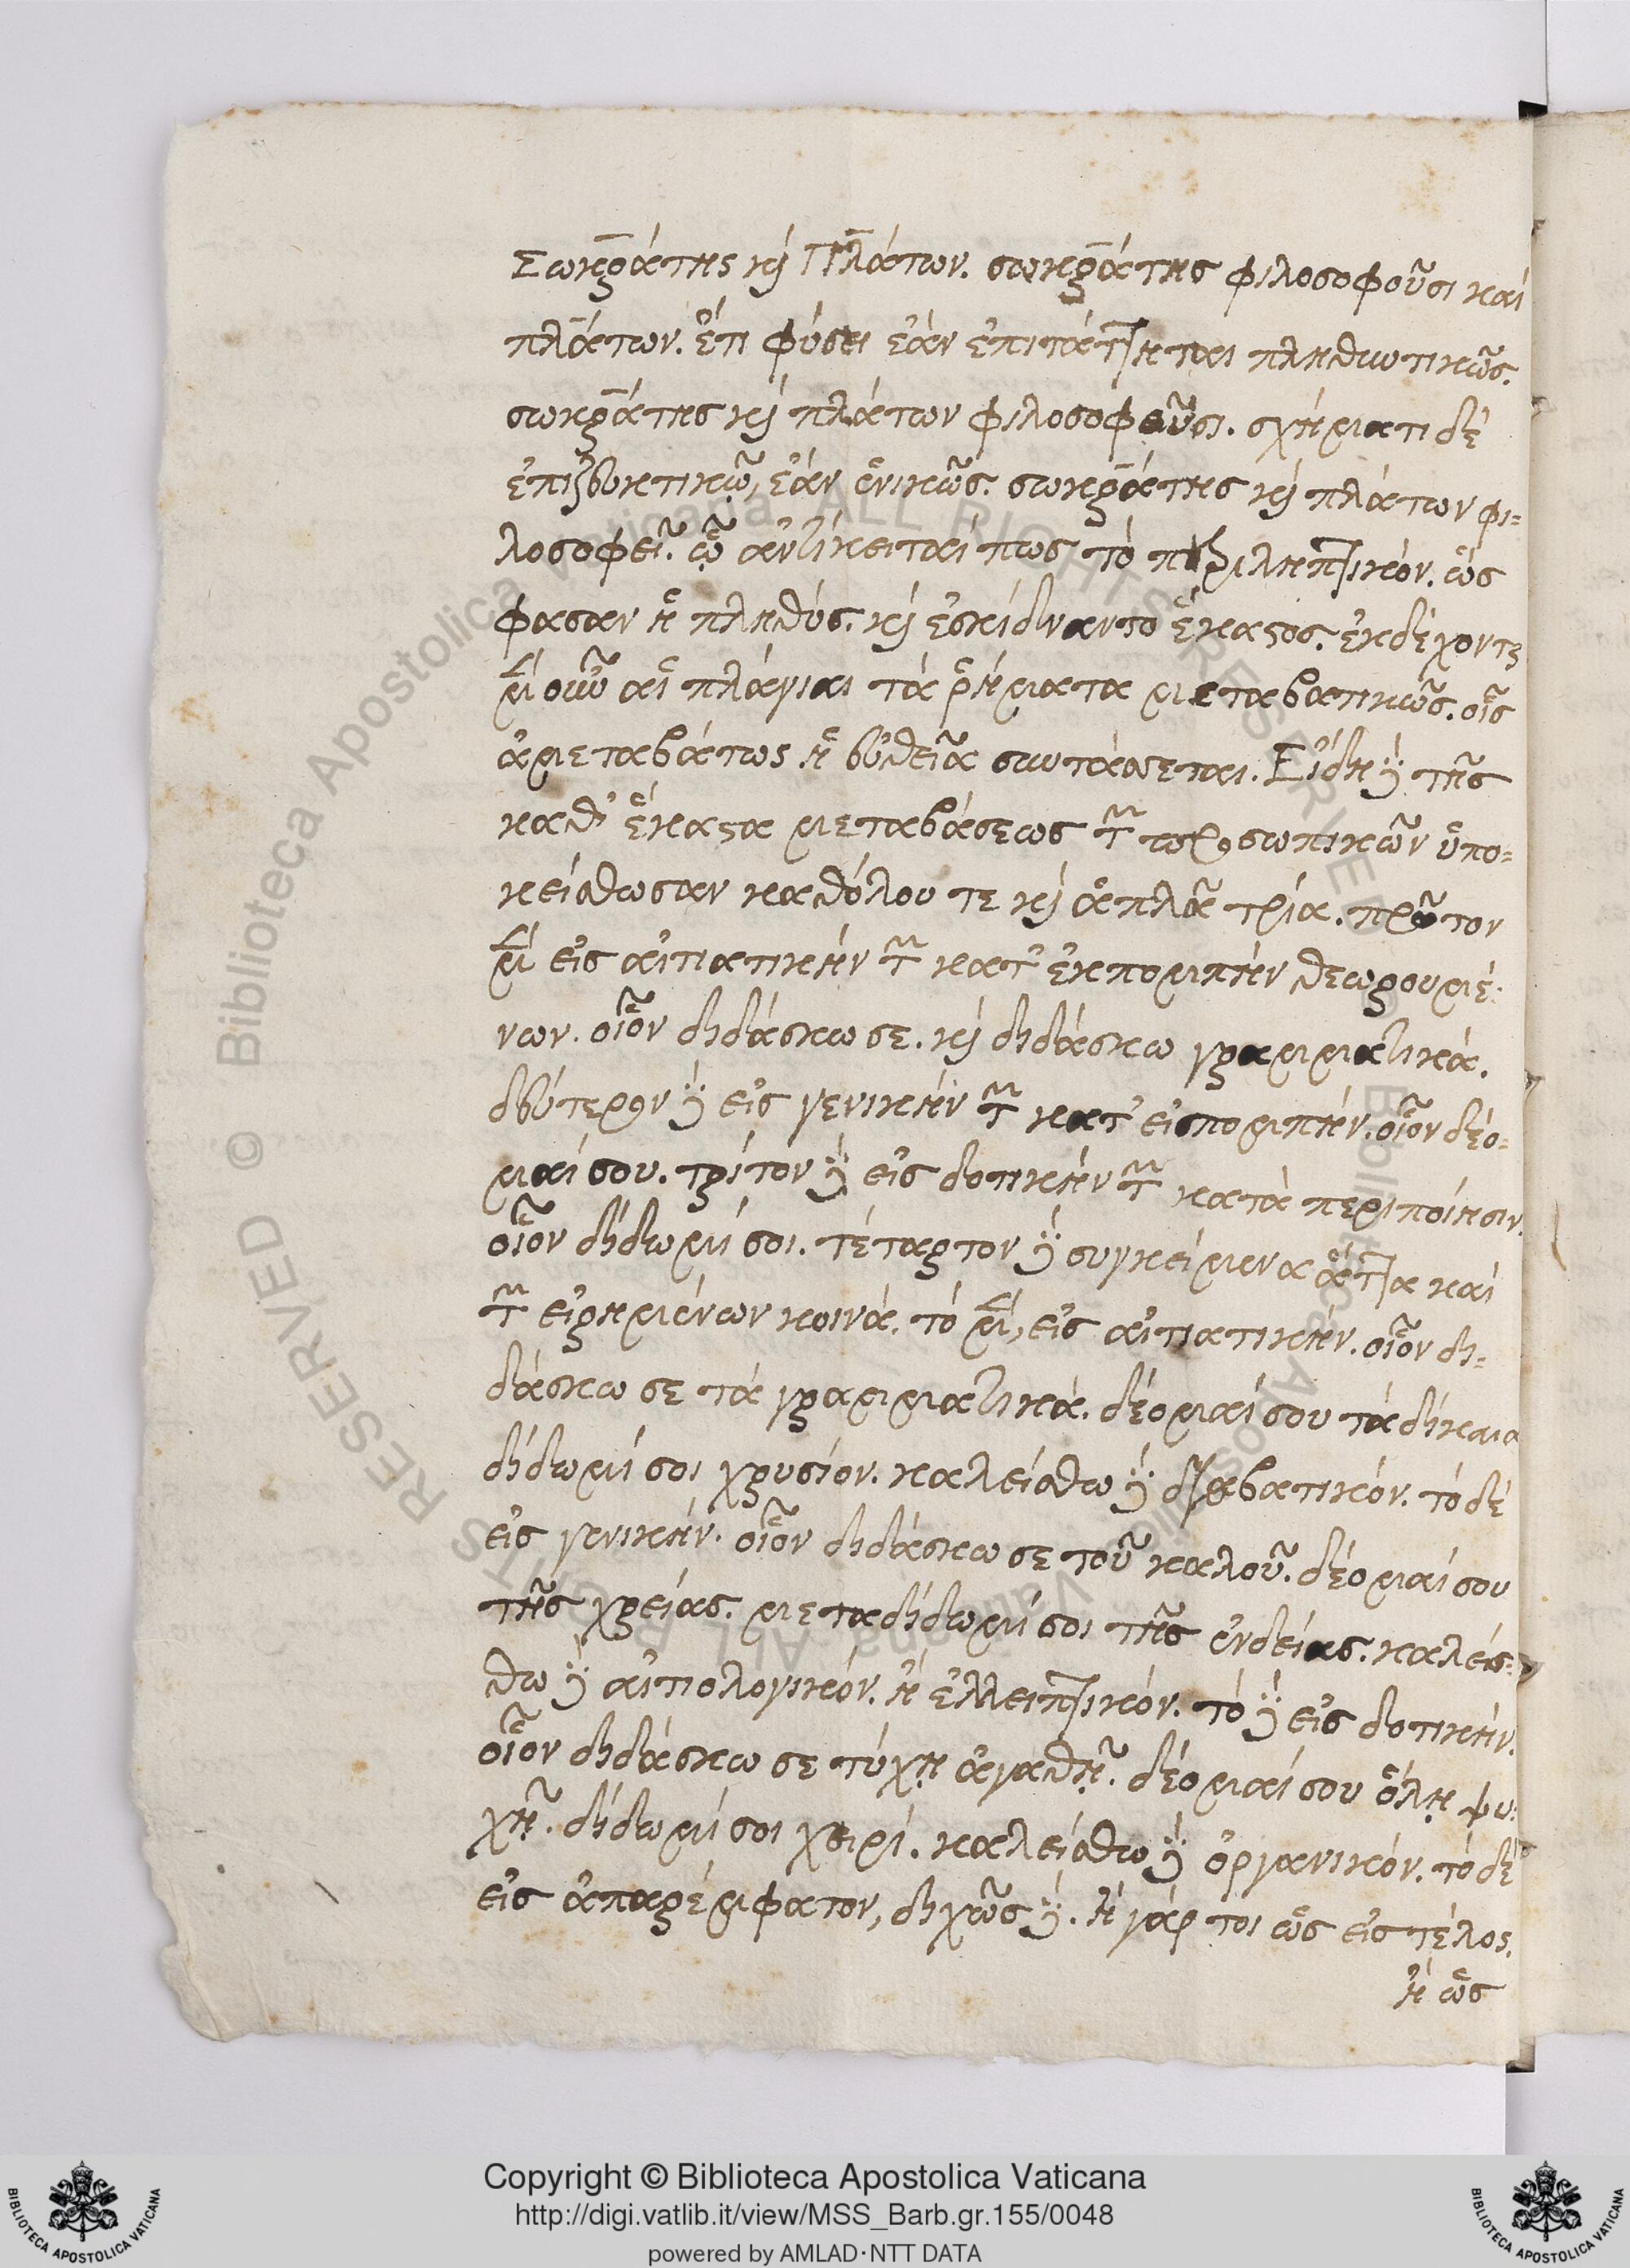 Σωκράτης κὶ Πλάτων. σωκράτης φιλοσοφοῦσι καὶ
πλάτων. ἔτι φύσει ἐὰν ἐπιτάττηται πληθυντικῶς.
σωκράτης κὶ πλάτων φιλοσοφοῦσι. σχήματι δὲ
ἐπιζευκτικῷ, ἐὰν ἑνικῶς. σωκράτης κὶ πλάτων φι-
λοσοφεῖ. ᾧ ἀντίκειταί πως τὸ περιληπτικόν. ὡς
φάσαν ἡ πληθύς. κὶ ἐσκίδναντο ἕκαστος. ἐκδέχονται
μὲν οὖν αἱ πλάγιαι τὰ ῥήματα μεταβατικῶς. οἷς
ἀμεταβάτως ἡ εὐθεῖα συντάσσεται. Εἴδη δὲ τῆς
καθ' ἕκαστα μεταβάσεως τῶν προσωπικῶν ὑπο-
κείσθωσαν καθόλου τε κὶ ἁπλᾶ τρία. πρῶτον
μὲν εἰς αἰτιατικὴν τῶν κατ' ἐκπομπὴν θεωρουμέ-
νων. οἷον διδάσκω σε. κὶ διδάσκω γραμματικά.
δεύτερον δὲ εἰς γενικὴν τῶν κατ' εἰσπομπήν. οἷον δέο-
μαί σου. τρίτον δὲ εἰς δοτικὴν τῶν κατὰ περιποίησιν.
οἷον δίδωμί σοι. τέταρτον δὲ συγκείμενα ἅττα καὶ
τῶν εἰρημένων κοινά. τὸ μὲν, εἰς αἰτιατικήν. οἷον δι-
δάσκω σε τὰ γραμματικά. δέομαί σου τὰ δίκαια
δίδωμί σοι χρυσίον. καλείσθω δὲ διαβατικόν. τὸ δὲ
εἰς γενικήν. οἷον διδάσκω σε τοῦ καλοῦ. δέομαί σου
τῆς χρείας. μεταδίδωμί σοι τῆς ἐνδείας. καλείσ-
θω δὲ αἰτιολογικόν. ἢ ἐλλειπτικόν. τὸ δὲ εἰς δοτικήν.
οἷον διδάσκω σε τύχῃ ἀγαθῇ. δέομαί σου ὅλῃ ψυ-
χῇ. δίδωμί σοι χειρί. καλείσθω δὲ ὀργανικόν. τὸ δὲ
εἰς ἀπαρέμφατον, διχῶς δὲ. ἢ γάρ τοι ὡς εἰς τέλος.
ἢ ὡς
Copyright © Biblioteca Apostolica Vaticana
http://digi.vatlib.it/view/MSS_Barb.gr.155/0048
powered by AMLAD·NTT DATA